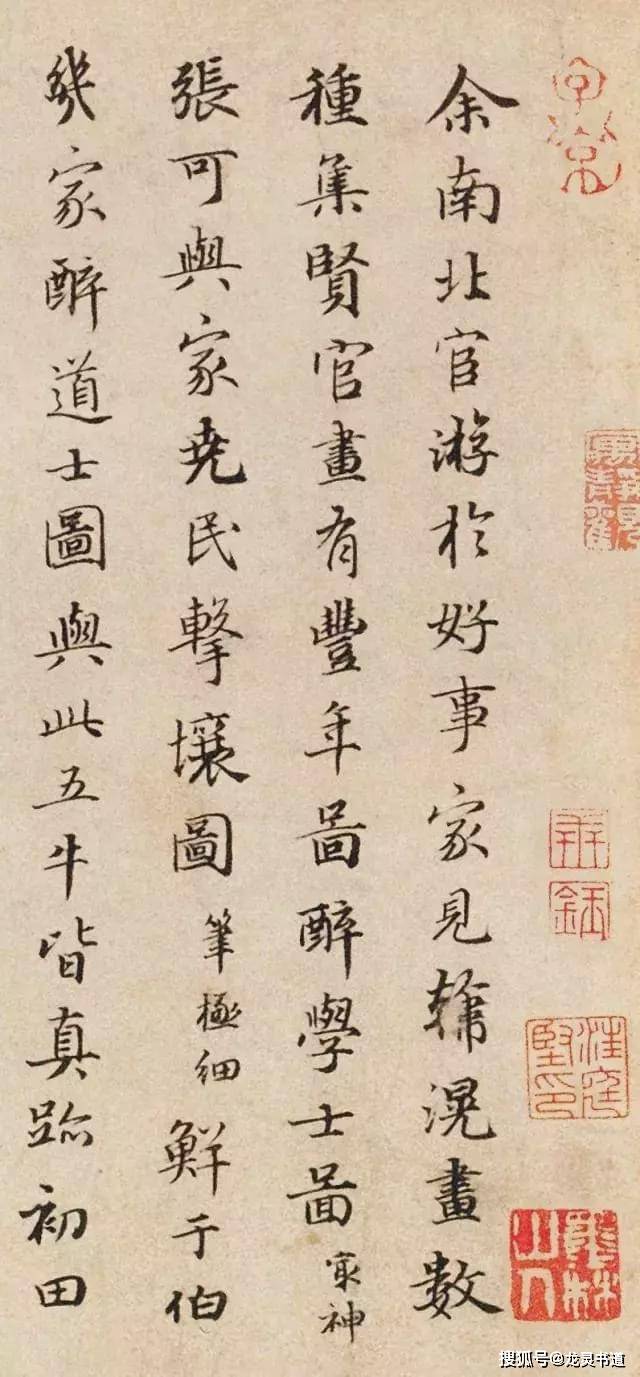 余南北官游於好事家見韓滉畫數
種集賢官畫有豐年啚醉學士啚最神
張可與家堯民擊壤圖筆極細鮮于伯
幾家醉道士圖與此五牛皆真跡初田
搜狐号@龙灵书道